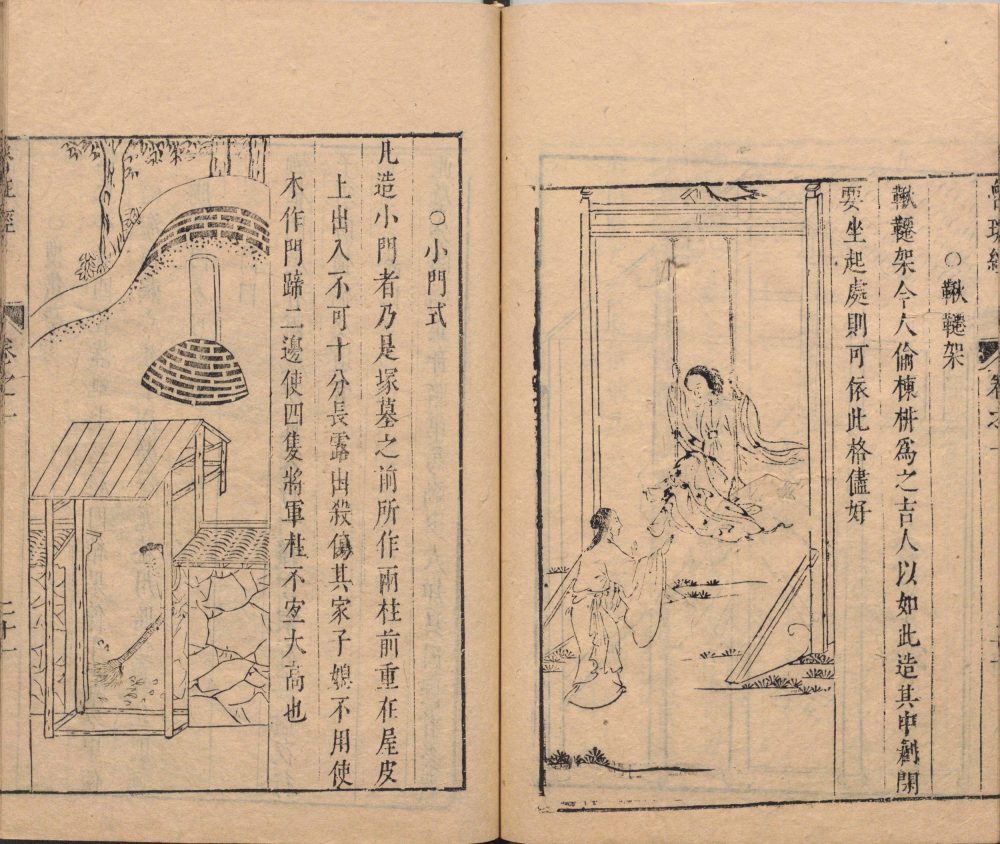 ○鞦韆架
鞦韆架今人偷棟栟爲之吉人以如此造其中創閑
要坐起處則可依此格儘好
○小門式
凡造小門者乃是塚墓之前所作兩柱前重在屋皮
上出入不可十分長露出殺傷其家子媳不用使
木作門蹄二邊使四隻將軍柱不宜大高也